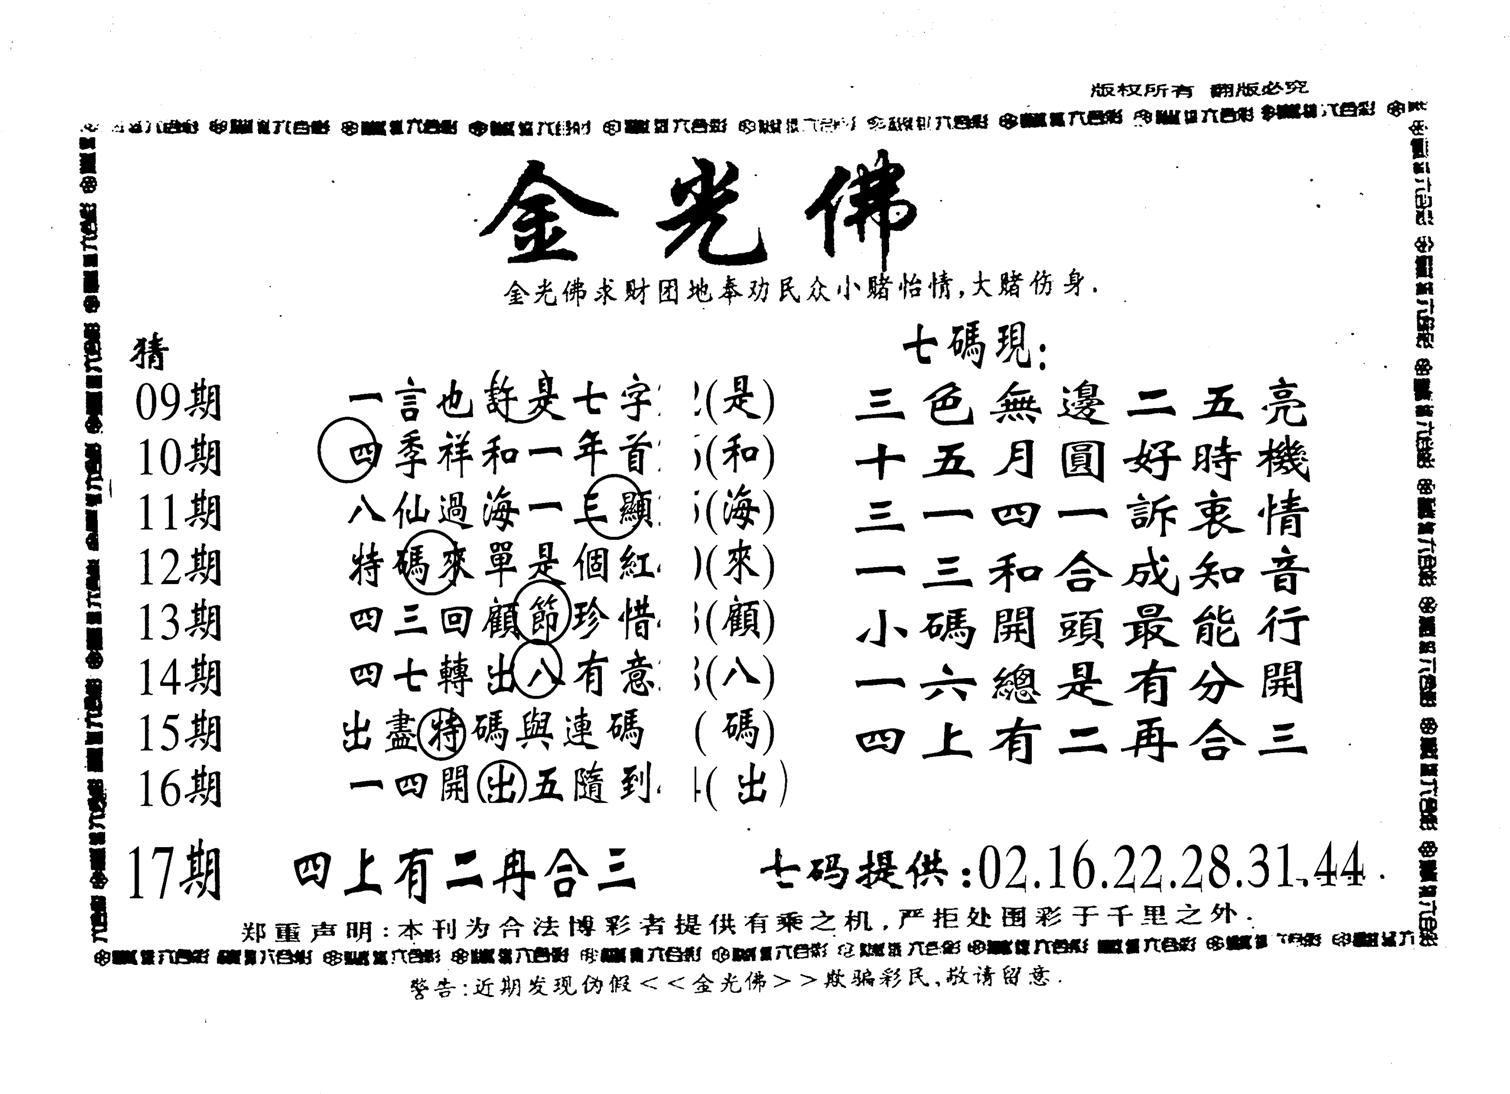 版权所有 翻版必究
金光佛
金光佛求财团地奉劝民众小赌怡情,大赌伤身.
猜
七碼現:
09期 一言也許是七字 (是) 三色無邊二五亮
10期 四季祥和一年首 (和) 十五月圓好時機
11期 八仙過海一三顯 (海) 三一四一訴衷情
12期 特碼來單是個紅 (來) 一三和合成知音
13期 四三回顧節珍惜 (顧) 小碼開頭最能行
14期 四七轉出八有意 (八) 一六總是有分開
15期 出盡特碼與連碼 (碼) 四上有二再合三
16期 一四開出五隨到 (出)
17期 四上有二冉合三 七码提供:02.16.22.28.31.44.
郑重声明:本刊为合法博彩者提供有乘之机,严拒处围彩于千里之外.
警告:近期发现伪假<<金光佛>>欺骗彩民,敬请留意.